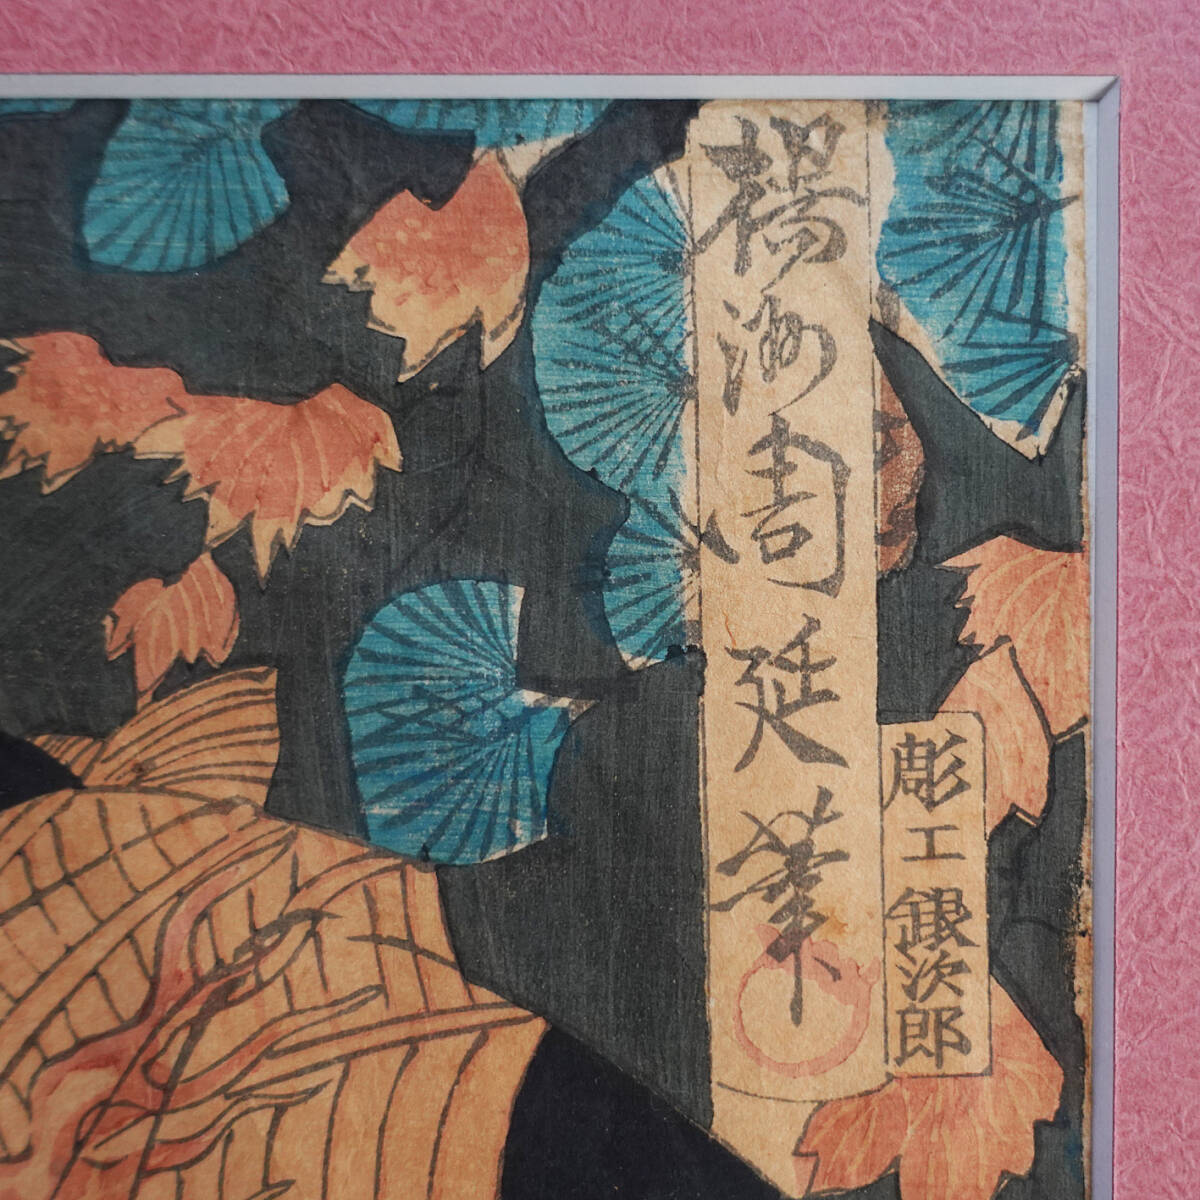 楊洲周延筆
彫工銀次郎